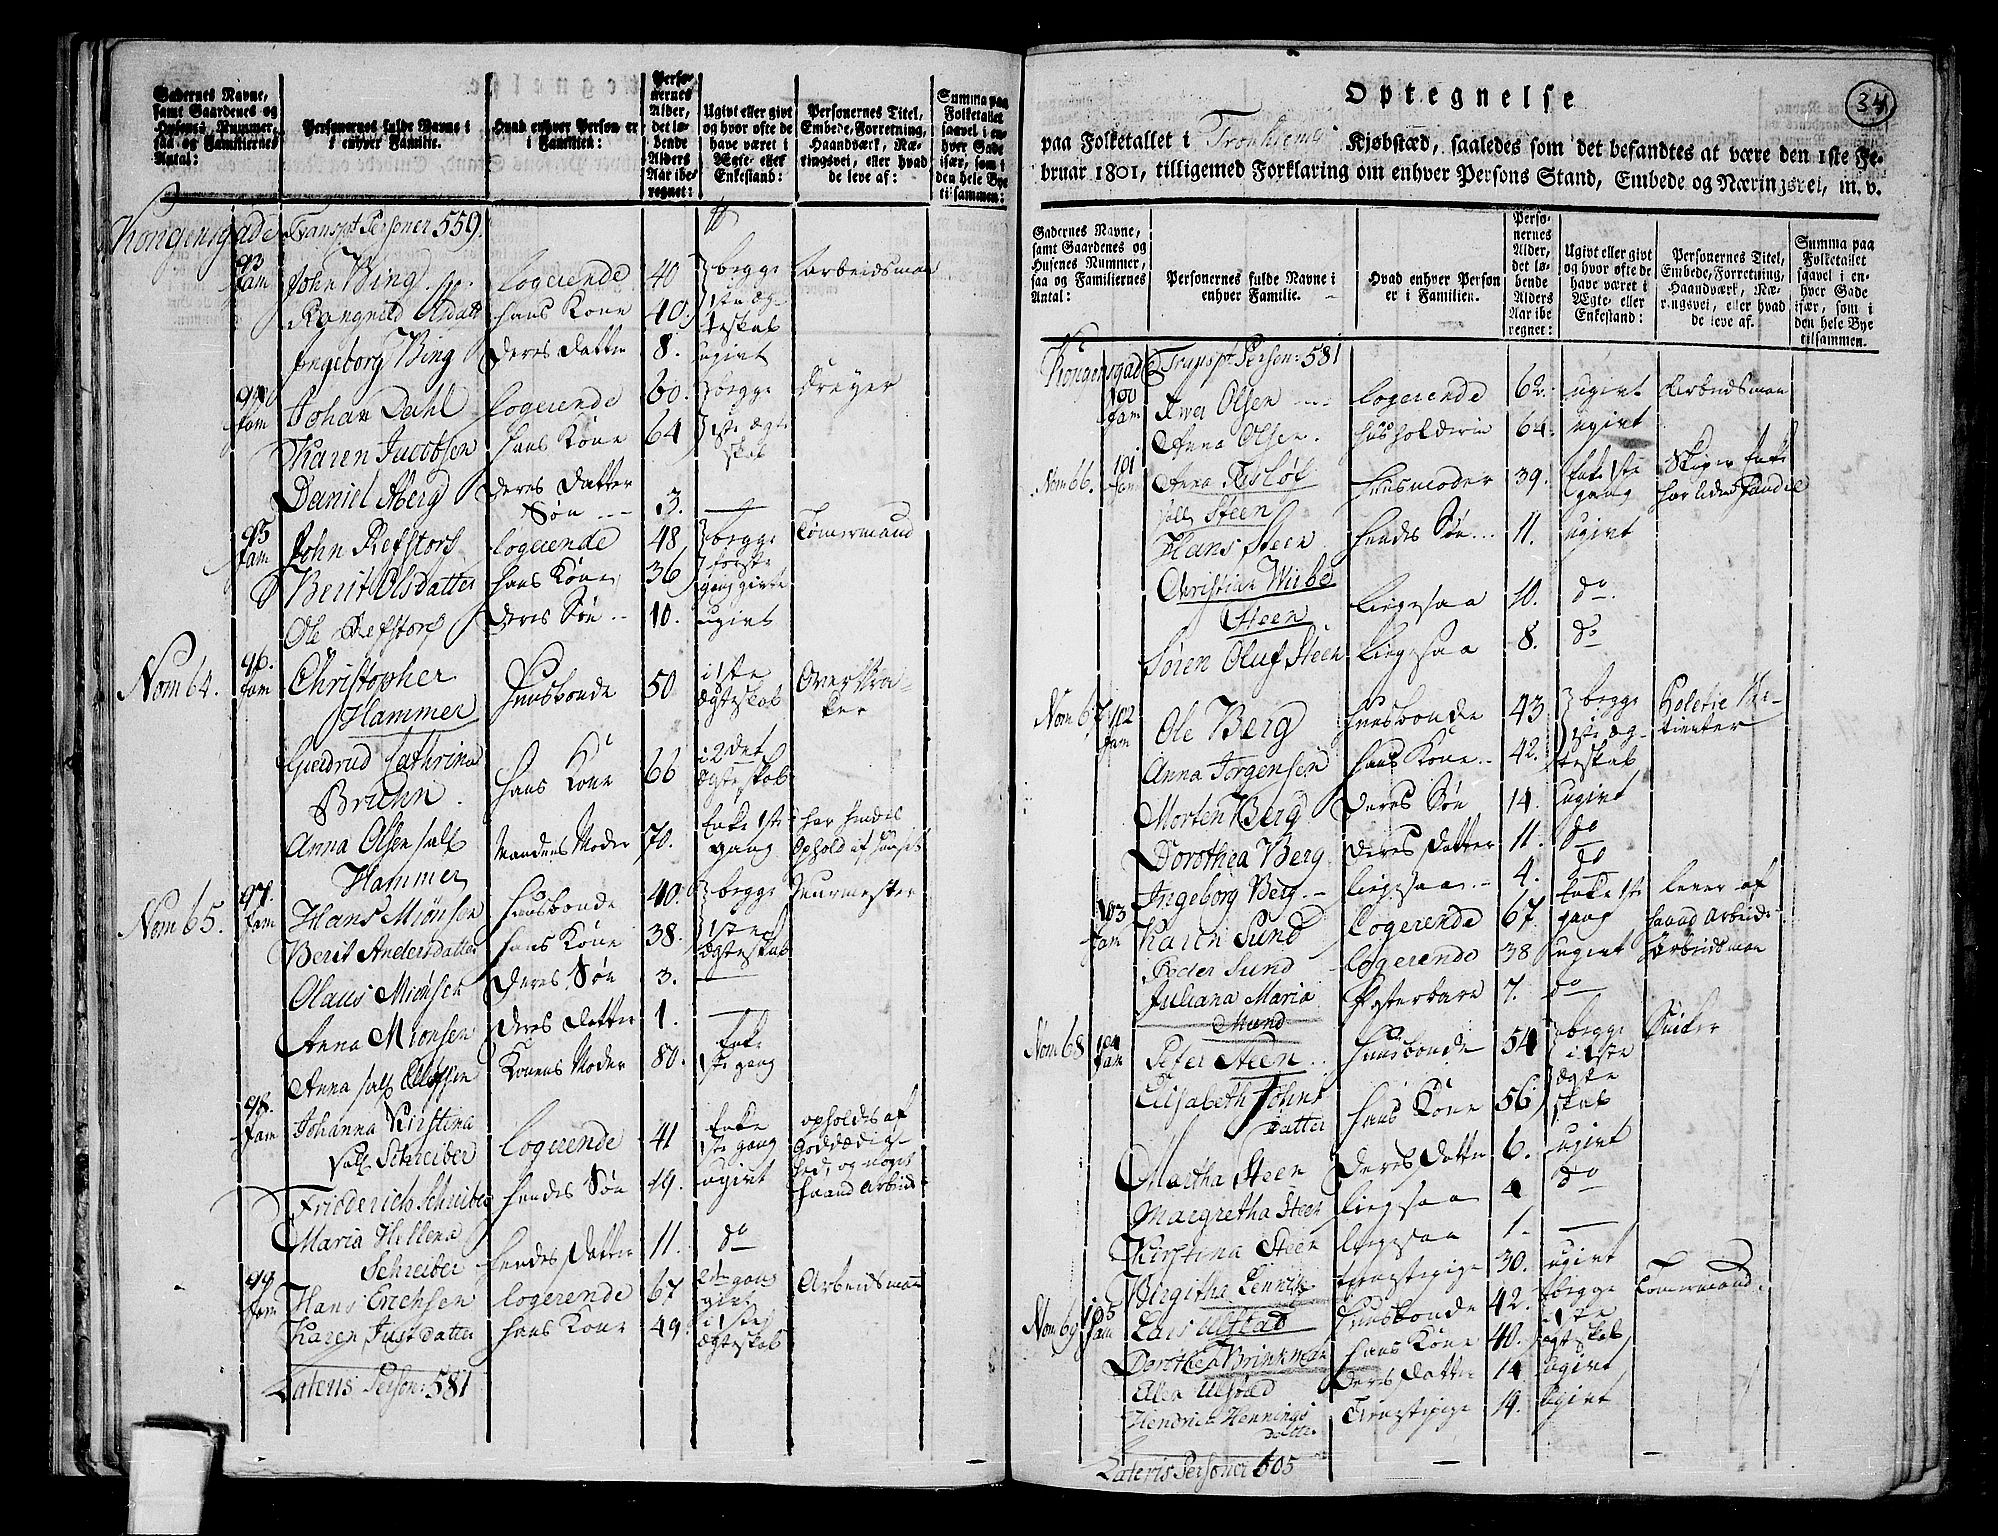 Gadernes Navne,
samt Gaardenes og
Husenes Nummer,
saa og Familiernes
Antal:
Personernes fulde Navne i
enhver Familie.
Hvad enhver Person er
i Familien:
Perso-
nernes
Alder,
det lø-
bende
Alders
Aar ibe-
regnet:
Ugivt eller givt
og hvor ofte de
have været i
Ægte- eller
Enkestand:
Personernes Titel,
Embede, Forretning,
Haandværk, Næ-
ringsvei, eller hvad
de leve af:
Summa paa
Folketallet
saavel i en-
hver Gade
især, som i
den hele Bye
tilsammen:
Kongensgade Transpt Personer 559.
93 Fam John Bing logerende 40 begge Arbeidsman
Rangnild Olsdatt hans Kone 40. 1ste Æg-
teskab
Ingeborg Bing deres Datter 8. ugivt
94 Fam Johan Dahl logerende 60. begge Dreyer
Karen Jacobsen hans Kone 64 1ste Ægte
skab
Daniel Aberg deres Datter
Søn --- 3. —
95 Fam John Refstors logerende 48 begge Tømermand
Berit Olsdatter hans Kone 36 første
gang givte
Ole Refstors deres Søn -- 10. ugivt
Nom 64. 96. Fam Christopher
Hammer Huusbonde 50 i 1ste
Ægteskab Overvra-
ker
Giedrud Cathrina
Bruhn. hans Kone 66 i 2det
Ægteskab
Anna Olsen sal
Hammer Mandens Moder 70. Enke 1ste
gang
Nom 65. 97. Fam Hans Miönsen Huusbonde 40. begge Muurmester
Berit Andersdatter hans Kone 38. 1ste
Ægteskab
Olaus Miönsen deres Søn 3. —
Anna Miönsen deres Datter 1. —
Anna sal Ellefsen Konens Moder 80. Enke
1ste gang
98. Fam Johanna Kirstina
Sal Schreiber logerende 41 Enke
1ste gang opholdes af
Godædig-
hed og noget
Haand Arbeide
Friderich Schreiber hendes Søn 19. ugivt
Maria Hellena
Schreiber hendes Datter 11. do
99 Fam Hans Erichsen logerende 67 2den gang
givt Arbeidsman
Karen Justdatter hans Kone 49. i 1ste
Ægteskab
Lateris Person: 581
34
Optegnelse
paa Folketallet i Tronhiems Kjøbstæd, saaledes som det befandtes at være den 1ste Fe-
bruar 1801, tilligemed Forklaring om enhver Persons Stand, Embede og Næringsvei, m. v.
Gadernes Navne,
samt Gaardenes og
Husenes Nummer,
saa og Familiernes
Antal:
Personernes fulde Navne i
enhver Familie.
Hvad enhver Person
er i Familien.
Perso-
nernes
Alder,
det lø-
bende
Alders
Aar ibe
regnet:
Ugivt eller givt
og hvor ofte de
have været i
Ægte- eller
Enkestand:
Personernes Titel,
Embede, Forretning,
Haandværk, Næ-
ringsvei, eller hvad
de leve af.
Summa paa
Folketallet
saavel i en-
hver Gade
især, som i
den hele Bye
tilsammen.
Kongensgade Transpt Person: 581
100 Fam Iwer Olsen --- logerende 62. ugivt Arbeidsman
Anna Olsen. Huusholderin 64. ugivt
Nom 66. 101 Fam Anna Tisløf
sal Steen Huusmoder 39. Enke 1ste
gang Skiper Enke
har liden Handel
Hans Steen hendes Søn --- 11. ugivt
Christian Wibe
Steen ligesaa 10. do.
Søren Oluf Steen ligesaa 8. do
Nom 67 102 Fam Ole Berg Huusbonde 43 begge
Anna Jørgensen hans Kone -- 42. 1ste Æg-
teskab
Morten Berg deres Søn 14. ugivt
Dorothea Berg. deres Datter 11. do
Ingeborg Berg -- ligesaa -- 4. do
103 Fam Karen Sund Logerende 67. Enke 1ste
gang lever af
haand Arbeide
Peder Sund logerende 38 ugivt Arbeidsman
Juliana Maria
Mund Posterbarn 7. do
Nom 68 104 Fam Peter Steen Huusbonde 54 begge
i 1ste
Elisabeth Johns
Datter hans Kone 56 Ægte
skab
Martha Steen deres Datter 6. ugivt
Margretha Steen ligesaa 4 do
Kirstina Steen ligesaa 1. —
Birgitha Lennik Tienestepige 30. ugivt
Nom 69 105 Fam Lars Ulstad Huusbonde 42. begge
i 1ste Tømermand.
Dorothea Brinkman hans Kone 40. Ægteskab
Elen Ulstad deres Datter 14 ugivt
Hendrica Hennings
Datter Tienestepige 19. ugivt
Lateris Personer 605